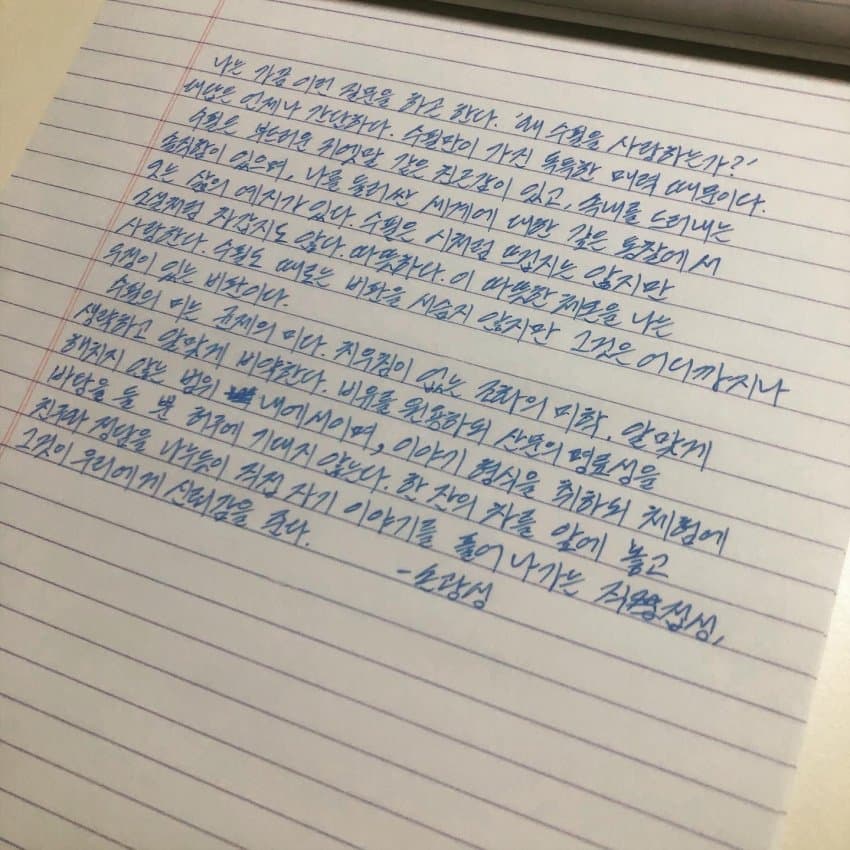 나는 가끔 이런 질문을 하곤 한다. '왜 수필을 사랑하는가?'
대답은 언제나 간단하다. 수필만이 가진 독특한 매력 때문이다.
수필은 부드러운 귀엣말 같은 친근감이 있고, 속내를 드러내는
솔직함이 있으며, 나를 둘러싼 세계에 대한 깊은 통찰에서
오는 삶의 예지가 있다. 수필은 시처럼 뜨겁지는 않지만
소설처럼 차갑지도 않다. 따뜻하다. 이 따뜻한 체온을 나는
사랑한다. 수필도 때로는 비판을 서슴지 않지만 그것은 어디까지나
우정이 있는 비판이다.
수필의 미는 균제의 미다. 치우침이 없는 조화의 미학. 알맞게
생략하고 알맞게 비약한다. 비유를 원용하되 산문의 명료성을
해치지 않는 범위 내에서이며, 이야기 형식을 취하되 체험에
바탕을 둘 뿐 허구에 기대지 않는다. 한 잔의 차를 앞에 놓고
친구와 정담을 나누듯이 직접 자기 이야기를 풀어 나가는 직접성,
그것이 우리에게 신뢰감을 준다.
-손광성